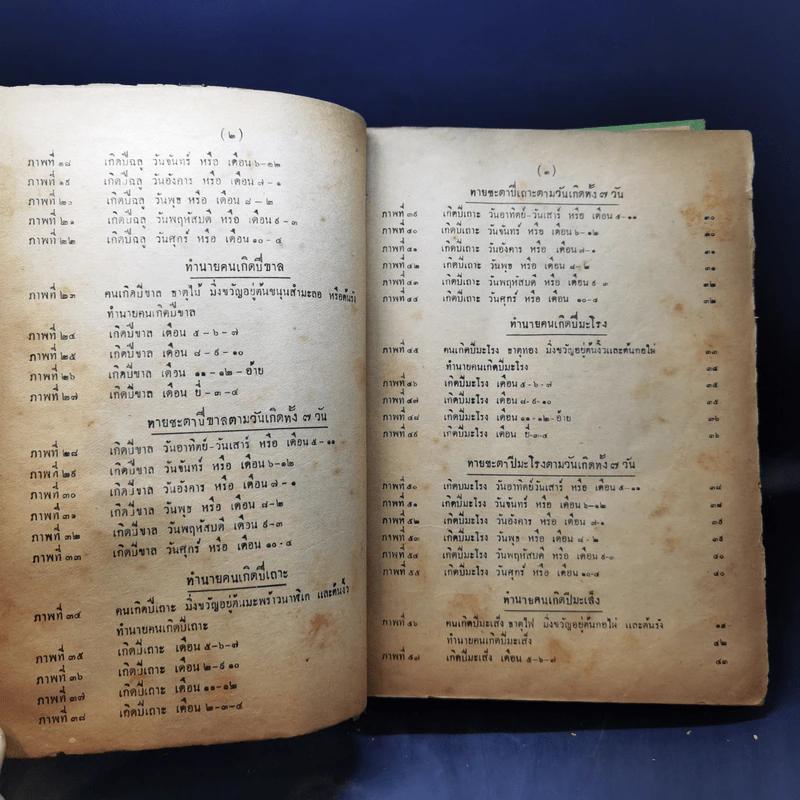 (๒)
ภาพที่ ๑๘ เกิดปีฉลู วันจันทร์ หรือ เดือน ๖-๑๒
ภาพที่ ๑๙ เกิดปีฉลู วันอังคาร หรือ เดือน ๗-๑
ภาพที่ ๒๐ เกิดปีฉลู วันพุธ หรือ เดือน ๘-๒
ภาพที่ ๒๑ เกิดปีฉลู วันพฤหัสบดี หรือ เดือน ๙-๓
ภาพที่ ๒๒ เกิดปีฉลู วันศุกร์ หรือ เดือน ๑๐-๔
ทำนายคนเกิดปีขาล
ภาพที่ ๒๓ คนเกิดปีขาล ธาตุไม้ มิ่งขวัญอยู่ต้นขนุนสำมะลอ หรือต้นรัง
ทำนายคนเกิดปีขาล
ภาพที่ ๒๔ เกิดปีขาล เดือน ๕-๖-๗
ภาพที่ ๒๕ เกิดปีขาล เดือน ๘-๙-๑๐
ภาพที่ ๒๖ เกิดปีขาล เดือน ๑๑-๑๒-อ้าย
ภาพที่ ๒๗ เกิดปีขาล เดือน ยี่-๓-๔
ทายชะตาปีขาลตามวันเกิดทั้ง ๗ วัน
ภาพที่ ๒๘ เกิดปีขาล วันอาทิตย์-วันเสาร์ หรือ เดือน ๕-๑๑
ภาพที่ ๒๙ เกิดปีขาล วันจันทร์ หรือ เดือน ๖-๑๒
ภาพที่ ๓๐ เกิดปีขาล วันอังคาร หรือ เดือน ๗-๑
ภาพที่ ๓๑ เกิดปีขาล วันพุธ หรือ เดือน ๘-๒
ภาพที่ ๓๒ เกิดปีขาล วันพฤหัสบดี เดือน ๙-๓
ภาพที่ ๓๓ เกิดปีขาล วันศุกร์ หรือ เดือน ๑๐-๔
ทำนายคนเกิดปีเถาะ
ภาพที่ ๓๔ คนเกิดปีเถาะ มิ่งขวัญอยู่ต้นมะพร้าวนาฬิเก และต้นงิ้ว
ทำนายคนเกิดปีเถาะ
ภาพที่ ๓๕ เกิดปีเถาะ เดือน ๕-๖-๗
ภาพที่ ๓๖ เกิดปีเถาะ เดือน ๒-๙ ๑๐
ภาพที่ ๓๗ เกิดปีเถาะ เดือน ๑๑-๑๒
ภาพที่ ๓๘ เกิดปีเถาะ เดือน ๒-๓-๔
(๓)
ทายชะตาปีเถาะตามวันเกิดทั้ง ๗ วัน
ภาพที่ ๓๙ เกิดปีเถาะ วันอาทิตย์-วันเสาร์ หรือ เดือน ๕-๑๑ ๓๐
ภาพที่ ๔๐ เกิดปีเถาะ วันจันทร์ หรือ เดือน ๖-๑๒ ๓๐
ภาพที่ ๔๑ เกิดปีเถาะ วันอังคาร หรือ เดือน ๗-๑ ๓๑
ภาพที่ ๔๒ เกิดปีเถาะ วันพุธ หรือ เดือน ๘-๒ ๓๑
ภาพที่ ๔๓ เกิดปีเถาะ วันพฤหัสบดี หรือ เดือน ๙-๓ ๓๒
ภาพที่ ๔๔ เกิดปีเถาะ วันศุกร์ หรือ เดือน ๑๐-๔ ๓๒
ทำนายคนเกิดปีมะโรง
ภาพที่ ๔๕ คนเกิดปีมะโรง ธาตุทอง มิ่งขวัญอยู่ต้นงิ้วและต้นกอไผ่ ๓๓
ทำนายคนเกิดปีมะโรง ๓๔
ภาพที่ ๔๖ เกิดปีมะโรง เดือน ๕-๖-๗ ๓๕
ภาพที่ ๔๗ เกิดปีมะโรง เดือน ๘-๙-๑๐ ๓๕
ภาพที่ ๔๘ เกิดปีมะโรง เดือน ๑๑-๑๒-อ้าย ๓๖
ภาพที่ ๔๙ เกิดปีมะโรง เดือน ยี่-๓-๔ ๓๖
ทายชะตาปีมะโรงตามวันเกิดทั้ง ๗ วัน
ภาพที่ ๕๐ เกิดปีมะโรง วันอาทิตย์วันเสาร์ หรือ เดือน ๕-๑๑ ๓๘
ภาพที่ ๕๑ เกิดปีมะโรง วันจันทร์ หรือ เดือน ๖-๑๒ ๓๘
ภาพที่ ๕๒ เกิดปีมะโรง วันอังคาร หรือ เดือน ๗-๑ ๓๙
ภาพที่ ๕๓ เกิดปีมะโรง วันพุธ หรือ เดือน ๘-๒ ๓๙
ภาพที่ ๕๔ เกิดปีมะโรง วันพฤหัสบดี หรือ เดือน ๙-๓ ๔๐
ภาพที่ ๕๕ เกิดปีมะโรง วันศุกร์ หรือ เดือน ๑๐-๔ ๔๐
ทำนายคนเกิดปีมะเส็ง
ภาพที่ ๕๖ คนเกิดปีมะเส็ง ธาตุไฟ มิ่งขวัญอยู่ต้นกอไผ่ และต้นรัง
ทำนายคนเกิดปีมะเส็ง ๔๒
ภาพที่ ๕๗ เกิดปีมะเส็ง เดือน ๕-๖-๗ ๔๓